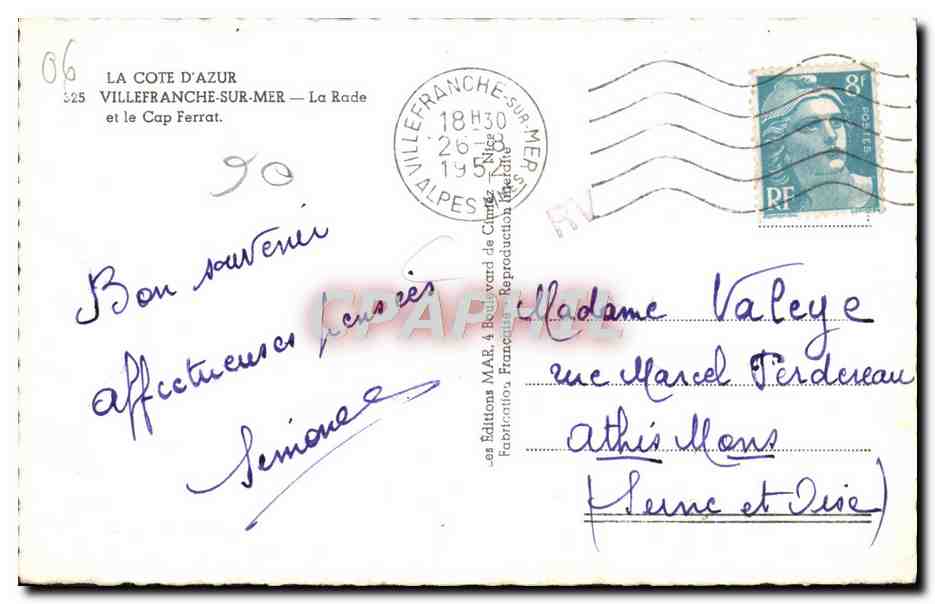 06
LA COTE D'AZUR
325 VILLEFRANCHE-SUR-MER — La Rade
et le Cap Ferrat.
90
VILLEFRANCHE-SUR-MER
18H30
26-8
1952
ALPES MMES
8F
POSTES
RF
RV
Bon souvenir
affectueuses pensées
Simone
Les Éditions MAR, 4 Boulevard de Cimiez - Nice
Fabrication Française - Reproduction Interdite
CPAPHIL
Madame Valeye
rue Marcel Perdereau
Athis Mons
(Seine et Oise)